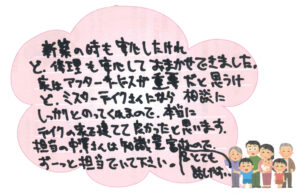 新築の時も安心したけれ
ど、修理も安心しておまかせできました。
家はアフターサービスが重要だと思うけ
ど、ミスターデイクまくになり相談に
しっかりとのってくれるので、本当に
デイクの家を建ててよかったと思います。
担当の中澤さんは知識豊富なので、
ずーっと担当でいて下さい。
とても